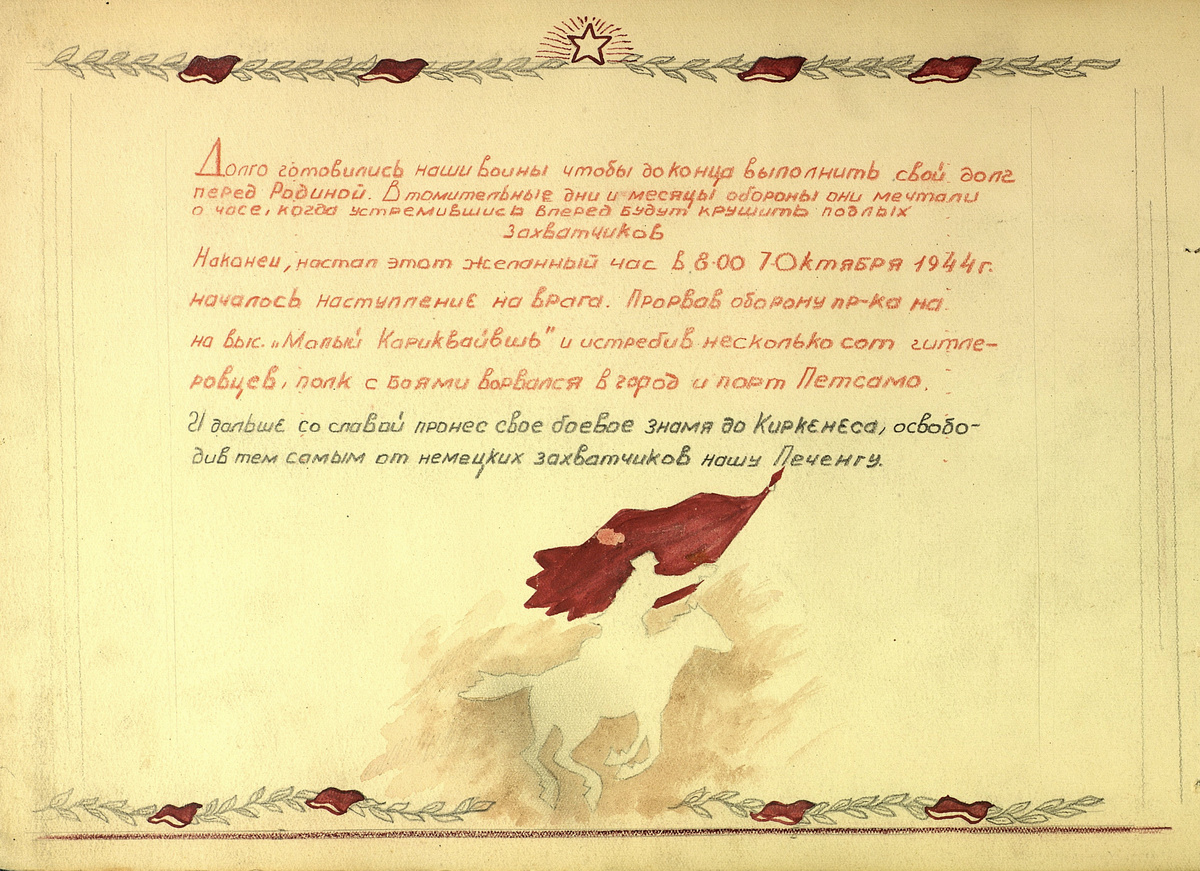 Долго готовились наши воины чтобы до конца выполнить свой долг
перед Родиной. В томительные дни и месяцы обороны они мечтали
о часе, когда устремившись вперед будут крушить подлых
захватчиков
Наконец, настал этот желанный час в 8.00 7 Октября 1944 г.
началось наступление на врага. Прорвав оборону пр-ка на
на выс. „Малый Кариквайвшь" и истребив несколько сот гитле-
ровцев, полк с боями ворвался в город и порт Петсамо.
И дальше со славой пронес свое боевое знамя до Киркенеса, освобо-
див тем самым от немецких захватчиков нашу Печенгу.